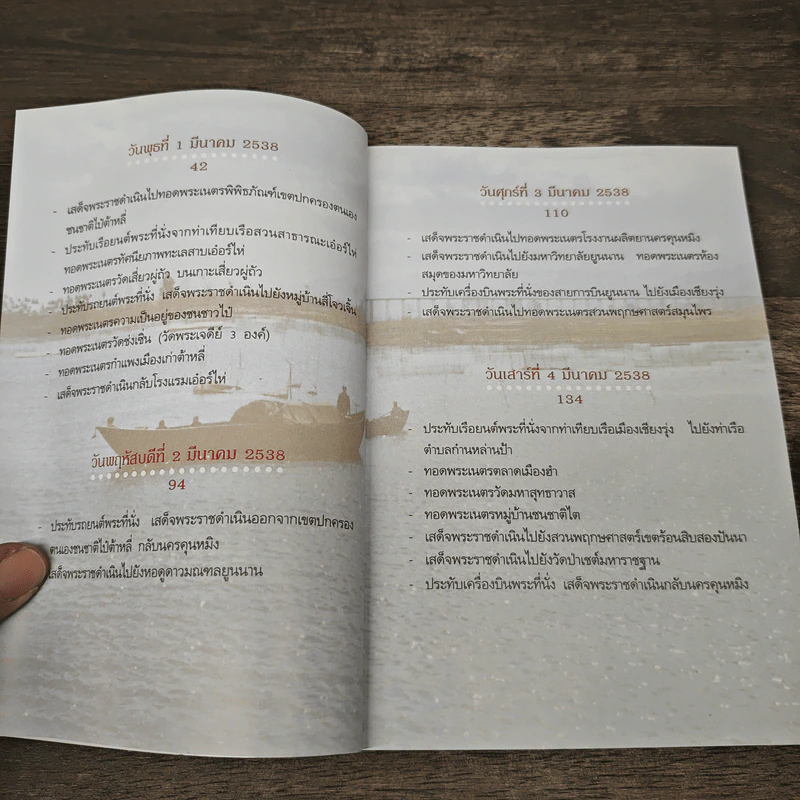 วันพุธที่ 1 มีนาคม 2538
42
- เสด็จพระราชดำเนินไปทอดพระเนตรพิพิธภัณฑ์เขตปกครองตนเอง
ชนชาติไป๋ต้าหลี่
- ประทับเรือยนต์พระที่นั่งจากท่าเทียบเรือสวนสาธารณะเอ๋อร์ไห่
ทอดพระเนตรทัศนียภาพทะเลสาบเอ๋อร์ไห่
- ทอดพระเนตรวัดเสี่ยวผู่ถัว บนเกาะเสี่ยวผู่ถัว
- ประทับรถยนต์พระที่นั่ง เสด็จพระราชดำเนินไปยังหมู่บ้านสี่โจวเจิ้น
- ทอดพระเนตรความเป็นอยู่ของชนชาวไป๋
- ทอดพระเนตรวัดช่งเซิ่น (วัดพระเจดีย์ 3 องค์)
- ทอดพระเนตรกำแพงเมืองเก่าต้าหลี่
- เสด็จพระราชดำเนินกลับโรงแรมเอ๋อร์ไห่
วันพฤหัสบดีที่ 2 มีนาคม 2538
94
- ประทับรถยนต์พระที่นั่ง เสด็จพระราชดำเนินออกจากเขตปกครอง
ตนเองชนชาติไป๋ต้าหลี่ กลับนครคุนหมิง
เสด็จพระราชดำเนินไปยังหอดูดาวมณฑลยูนนาน
วันศุกร์ที่ 3 มีนาคม 2538
110
- เสด็จพระราชดำเนินไปทอดพระเนตรโรงงานผลิตยานครคุนหมิง
- เสด็จพระราชดำเนินไปยังมหาวิทยาลัยยูนนาน ทอดพระเนตรห้อง
สมุดของมหาวิทยาลัย
- ประทับเครื่องบินพระที่นั่งของสายการบินยูนนาน ไปยังเมืองเชียงรุ่ง
- เสด็จพระราชดำเนินไปทอดพระเนตรสวนพฤกษศาสตร์สมุนไพร
วันเสาร์ที่ 4 มีนาคม 2538
134
- ประทับเรือยนต์พระที่นั่งจากท่าเทียบเรือเมืองเชียงรุ่ง ไปยังท่าเรือ
ตำบลก๋านหล่านป้า
- ทอดพระเนตรตลาดเมืองฮำ
- ทอดพระเนตรวัดมหาสุทธาวาส
- ทอดพระเนตรหมู่บ้านชนชาติไต
- เสด็จพระราชดำเนินไปยังสวนพฤกษศาสตร์เขตร้อนสิบสองปันนา
- เสด็จพระราชดำเนินไปยังวัดป่าเชต์มหาราชฐาน
- ประทับเครื่องบินพระที่นั่ง เสด็จพระราชดำเนินกลับนครคุนหมิง